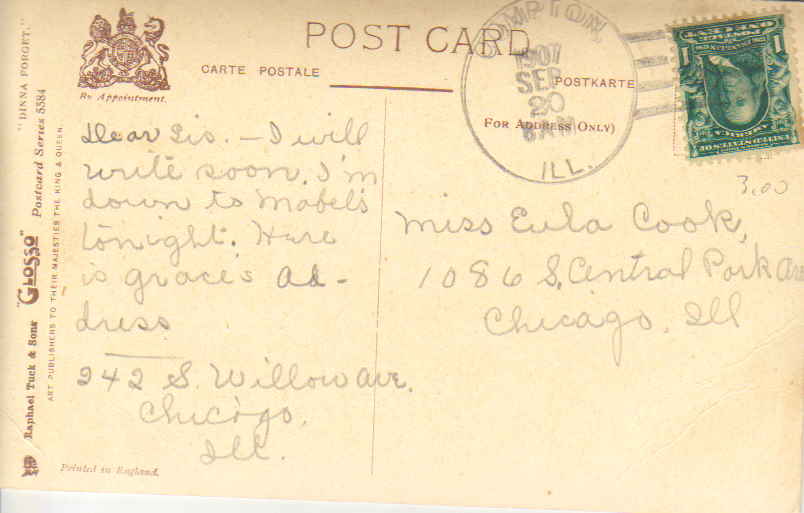 POST CARD
CARTE POSTALE
POSTKARTE
(FOR ADDRESS ONLY)
By Appointment.
"DINNA FORGET."
Raphael Tuck & Sons' "GLOSSO" Postcard Series 5584
ART PUBLISHERS TO THEIR MAJESTIES THE KING & QUEEN.
Printed in England.
COMPTON,
1907
SEP
20
6AM
ILL.
3.00
Dear Sis. — I will
write soon. I'm
down to Mabel's
tonight. Here
is grace's ad-
dress
242 S. Willow ave.
Chicago,
Ill.
Miss Eula Cook,
1086 S. Central Park Ave
Chicago, Ill